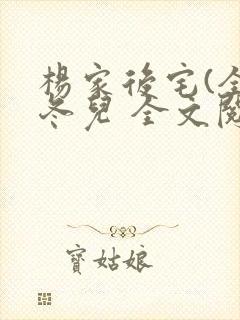 楊家後宅(全
冬兒 全文閱
寶姑娘